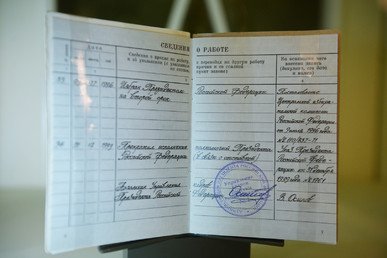 СВЕДЕНИЯ О РАБОТЕ
Дата
Сведения о приеме на работу,
о переводах на другую работу
и об увольнении (с указанием
причин и со ссылкой
на статью,
пункт закона)
На основании чего
внесена запись
(документ, его дата
и номер)
1996
Избран Президентом Российской Федерации
на второй срок
Постановление
Центральной избира-
тельной комиссии
Российской Федерации
1996 года
31 12 1999
Прекратил исполнение полномочий Президента
Российской Федерации (в связи с отставкой)
Указ Президента
Российской Феде-
рации
1999
Начальник Управления кадров
Президента Российской Федерации
В. Осипов